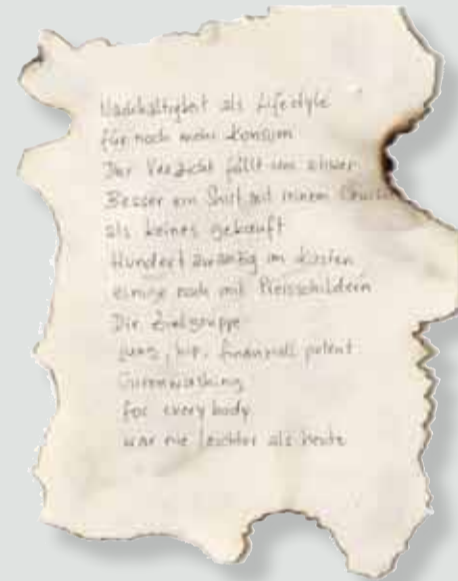 Nachhaltigkeit als Lifestyle
für noch mehr Konsum
Der Verzicht fällt uns schwer
Besser ein Shirt mit reinem Gewissen
als keines gekauft
Hundertzwanzig im Kasten
einige noch mit Preisschildern
Die Zielgruppe
jung, hip, finanziell potent
Greenwashing
for everybody
war nie leichter als heute